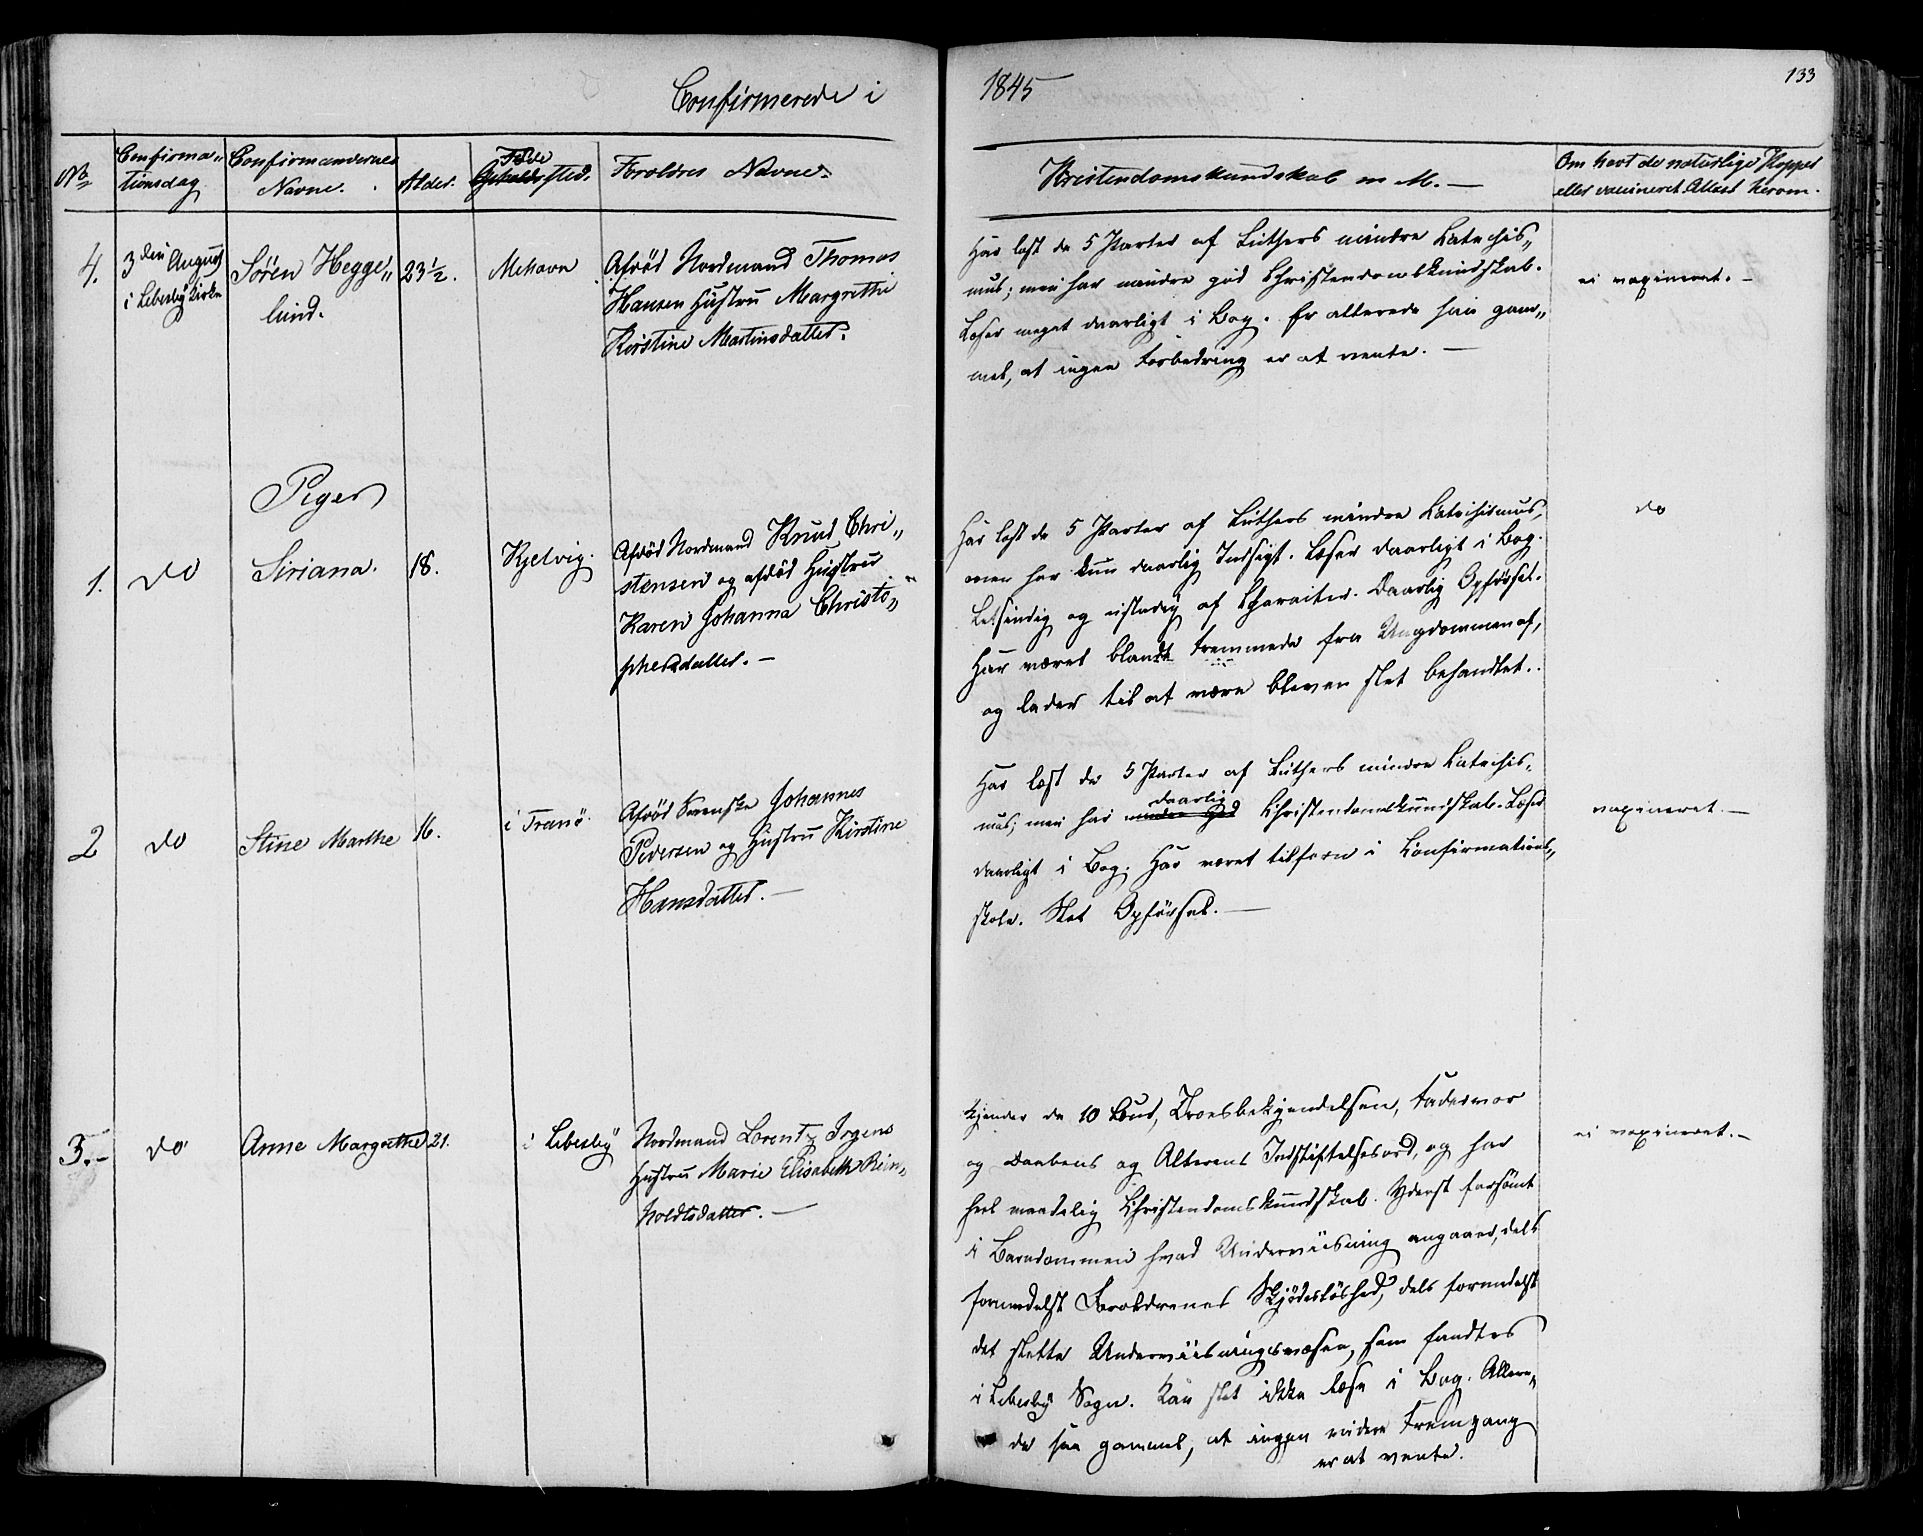 Confirmerede i
1845
133
No
Confirma„
tionsdag
Confirmandernes
Navne.
Alder.
Føde
sted.
Forældres Navne.
Kristendomskundskab m M. —
Om havt de naturlige Kopper
eller vaccineret Attest herom.
4.
3den August
i Lebesby Kirke
Søren Hegge„
lund.
23½.
Mehavn
Afdød Nordmand Thomas
Hansen Hustru Margrethe
Kirstine Martinsdatter.
Har læst de 5 Parter af Luthers mindre Katechis„
mus; men har mindre god Christendomskundskab.
Læser meget daarligt i Bog. Er allerede saa gam„
mel, at ingen Forbedring er at vente. —
ei vaxineret. —
Piger
1.
do
Siriana.
18.
Kjelvig.
Afdød Nordmand Knud Chri„
stensen og afdød Hustru
Karen Johanna Christo„
phersdatter. —
Har læst de 5 Parter af Luthers mindre Katechismus,
men har kun daarlig Indsigt. Læser daarligt i Bog.
Letsindig og ustadig af Charakter. Daarlig Opførsel.
Har været blandt Fremmede fra Ungdommen af,
og lader til at være bleven slet behandlet.
do
2
do
Stine Marthe
16.
i Tranö.
Afdød Svenske Johannes
Pedersen og Hustru Kirstine
Hansdatter. —
Har læst de 5 Parter af Luthers mindre Katechis„
mus; men har mindre god daarlig Christendomskundskab. Læser
daarligt i Bog. Har været tilforn i Confirmations„
skole. Slet Opførsel. —
vaxineret. —
3. -
do
Anne Margrethe
21.
i Lebesby
Nordmand Lorentz Irgens
Hustru Marie Elisabeth Rein„
holdtsdatter. —
Kjender de 10 Bud, Troesbekjendelsen, Fadervor
og Daabens og Alterens Indstiftelsesord, og har
heel maadelig Christendomskundskab. Yderst forsømt
i Barndommen hvad Underviisning angaaer, dels
formedelst Forældrenes Skjødesløshed, dels formedelst
det slette Underviisningsvæsen, som fandtes
i Lebesby Sogn. Kan slet ikke læse i Bog. Allere„
de saa gammel, at ingen videre Fremgang
er at vente.
ei vaxineret. —